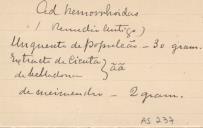 Ad hemorrhoidas
(Remedio antigo)
Unguento de populeão - 30 gram.
Extracto de Cicuta
de belladona } āā
de meimendro - 2 gram.
AS 237